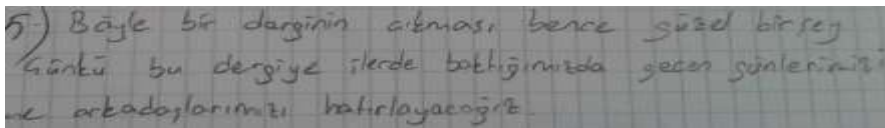 5) Böyle bir derginin çıkması bence güzel birşey
Çünkü bu dergiye ilerde baktığımızda geçen günlerimizi
ve arkadaşlarımızı hatırlayacağız.